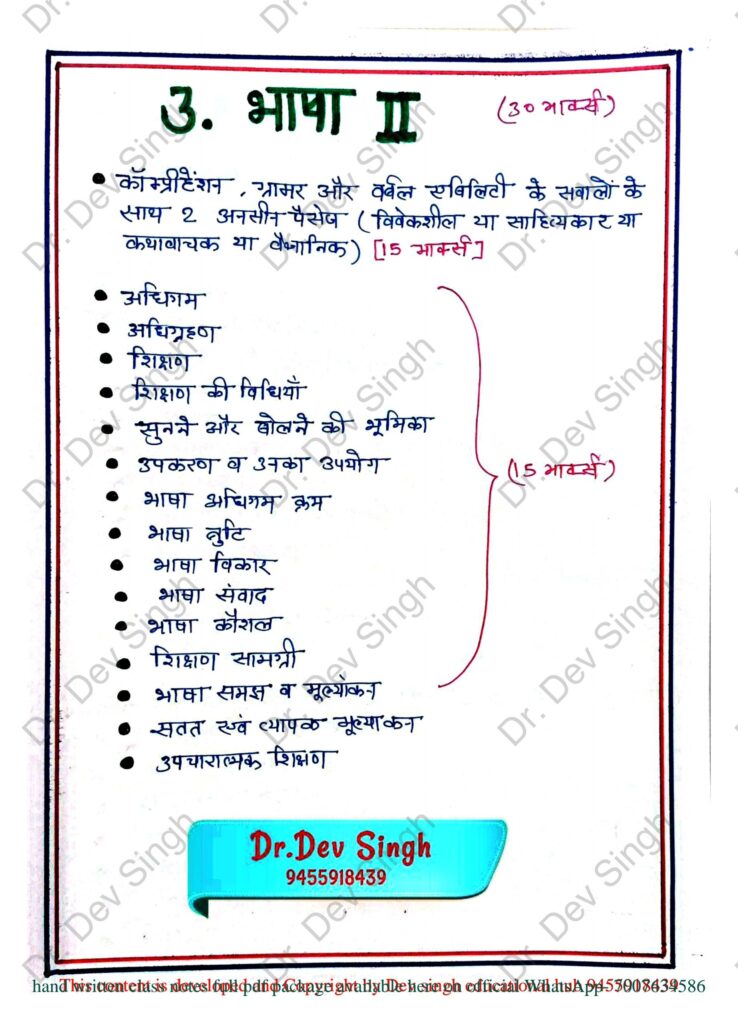 3. भाषा II (30 मार्क्स)
• कॉम्प्रीहेंशन, ग्रामर और वर्बल एबिलिटी के सवालों के
साथ 2 अनसीन पैसेज (विवेकशील या साहित्यकार या
कथावाचक या वैज्ञानिक) [15 मार्क्स]
• अधिगम
• अधिग्रहण
• शिक्षण
• शिक्षण की विधियाँ
• सुनने और बोलने की भूमिका
• उपकरण व उनका उपयोग
(15 मार्क्स)
• भाषा अधिगम क्रम
• भाषा त्रुटि
• भाषा विकार
• भाषा संवाद
• भाषा कौशल
• शिक्षण सामग्री
• भाषा समझ व मूल्यांकन
• सतत एवं व्यापक मूल्याकन
• उपचारात्मक शिक्षण
Dr.Dev Singh
9455918439